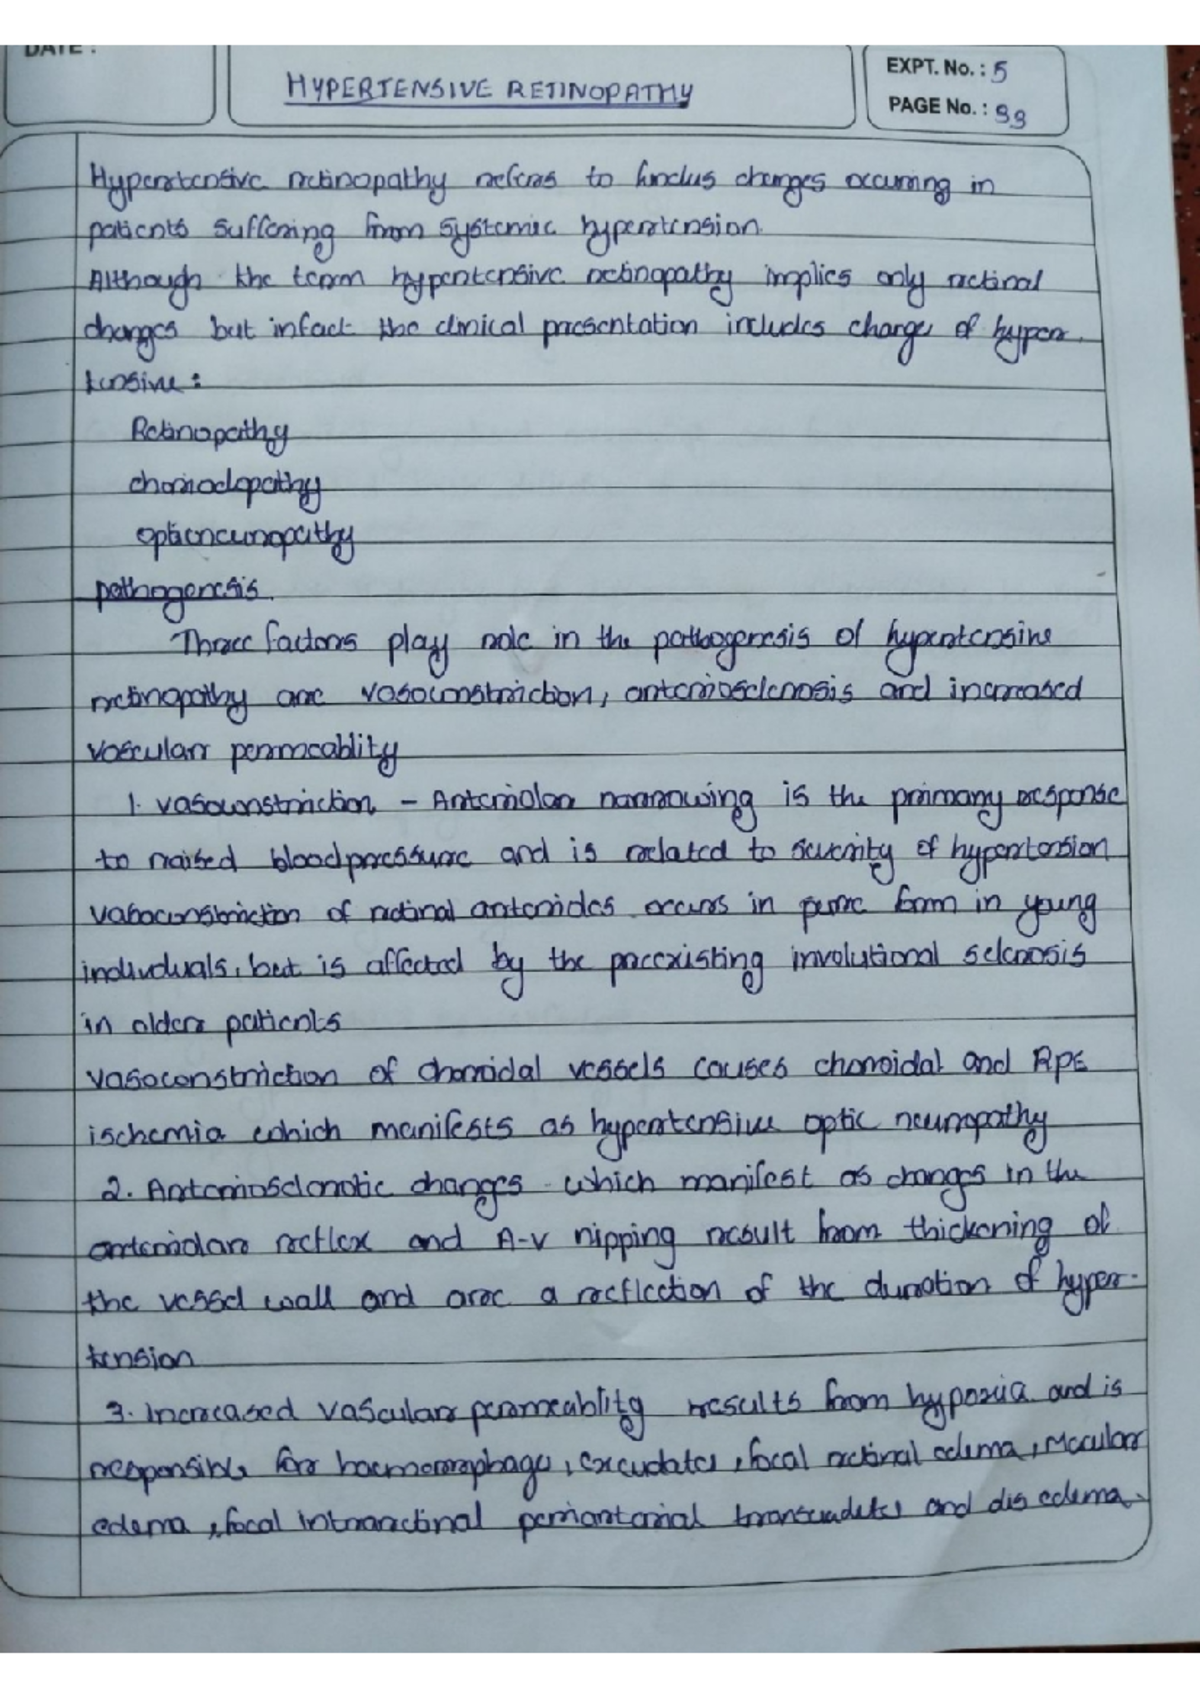 DATE :
HYPERTENSIVE RETINOPATHY
EXPT. No. : 5
PAGE No. : 33
Hypertensive retinopathy refers to fundus changes occuring in
patients suffering from systemic hypertension.
Although the term hypertensive retinopathy implies only retinal
changes but infact the clinical presentation includes change of hyper
tensive :
Retinopathy
choroidopathy
opticneuropathy
pathogenesis.
Three factors play role in the pathogenesis of hypertensive
retinopathy are vasoconstriction, arteriosclerosis and increased
vascular permeablity
1. vasoconstriction - Arteriolar narrowing is the primary response
to raised bloodpressure and is related to severity of hypertension
vasoconstriction of retinal arterioles occurs in pure form in young
individuals, but is affected by the preexisting involutional sclerosis
in older patients
vasoconstriction of choroidal vessels causes choroidal and RPE
ischemia which manifests as hypertensive optic neuropathy
2. Arteriosclerotic changes which manifest as changes in the
arteriolar reflex and A-V nipping result from thickening of
the vessel wall and are a reflection of the duration of hyper-
tension
3. Increased vascular permeablity results from hypoxia and is
responsible for haemorrhage, excudates, focal retinal edema, Macular
edema, focal intraretinal periarterial transcudates and dis edema.